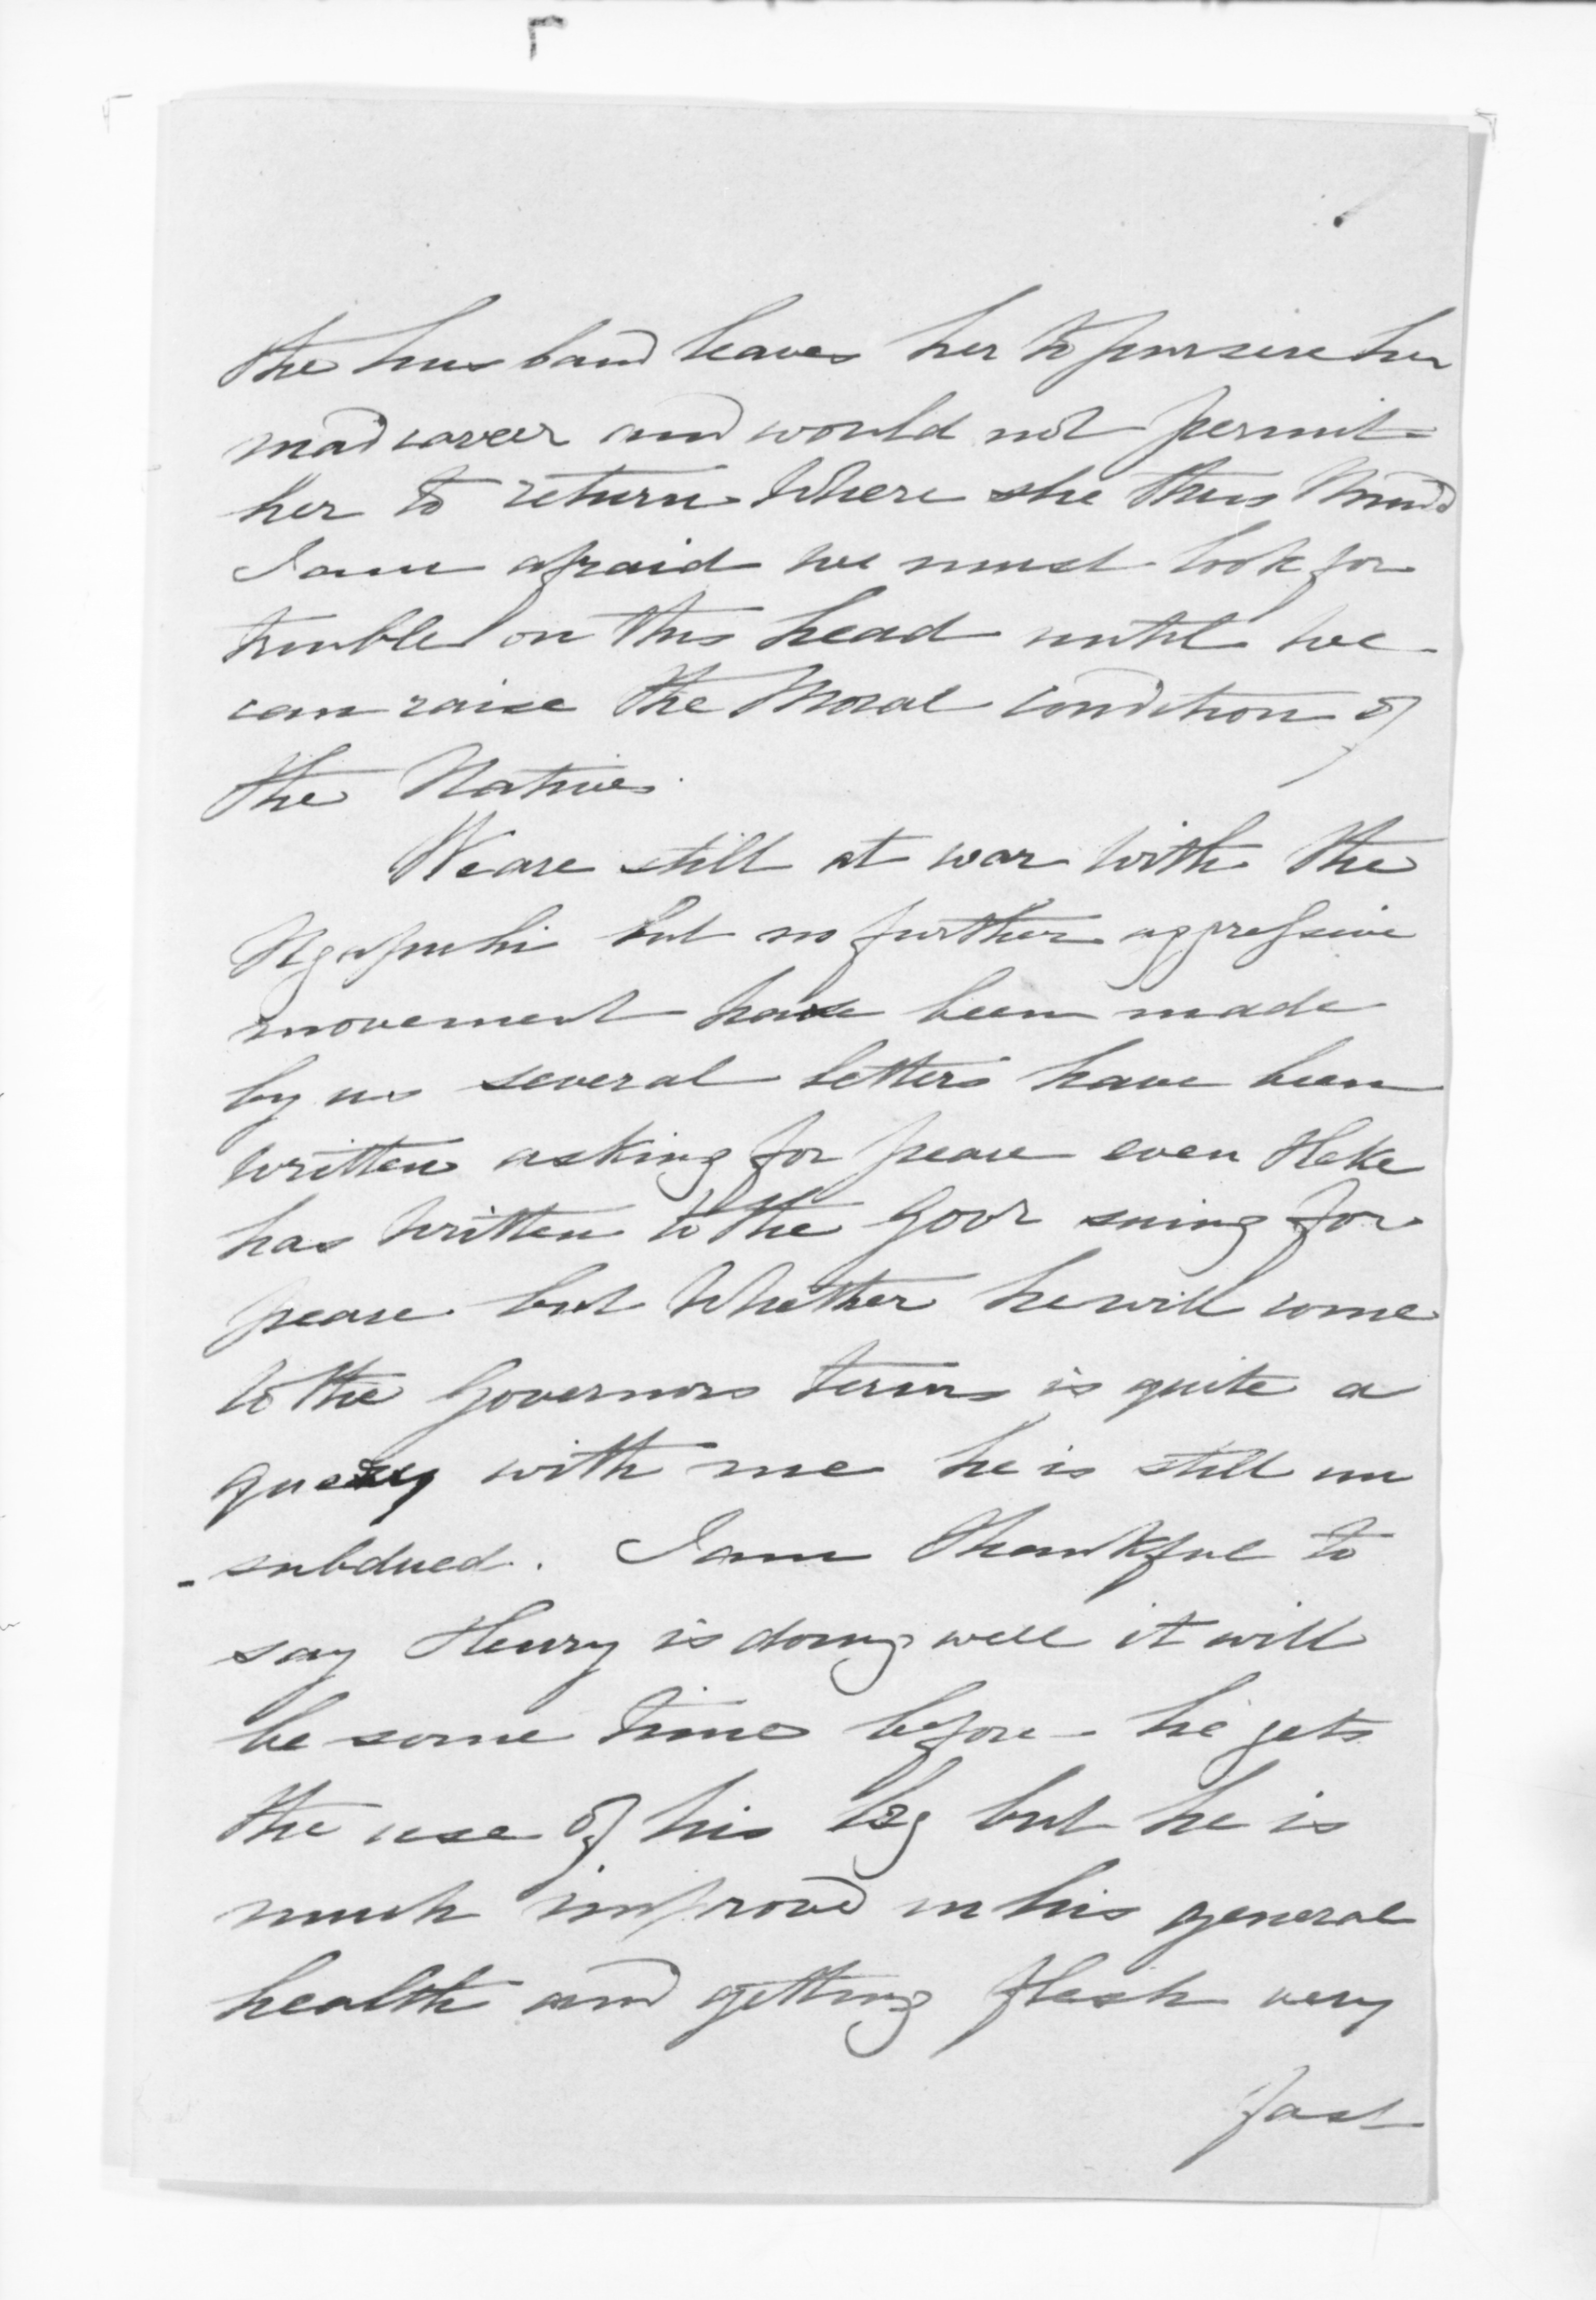 the husband leaves her to pursue her
mad career and would not permit
her to return where she thus
I am afraid we must look for
trouble on this head until we
can raise the Moral condition of
the Natives.
We are still at war with the
Ngapuhi but no further aggressive
movement have been made
by us several letters have been
written asking for peace even Heke
has written to the Govr suing for
peace but whether he will come
to the Governors terms is quite a
query with me he is still un
-subdued. I am thankful to
say Henry is doing well it will
be some time before he gets
the use of his leg but he is
much improv'd in his general
health and getting flesh very
fast